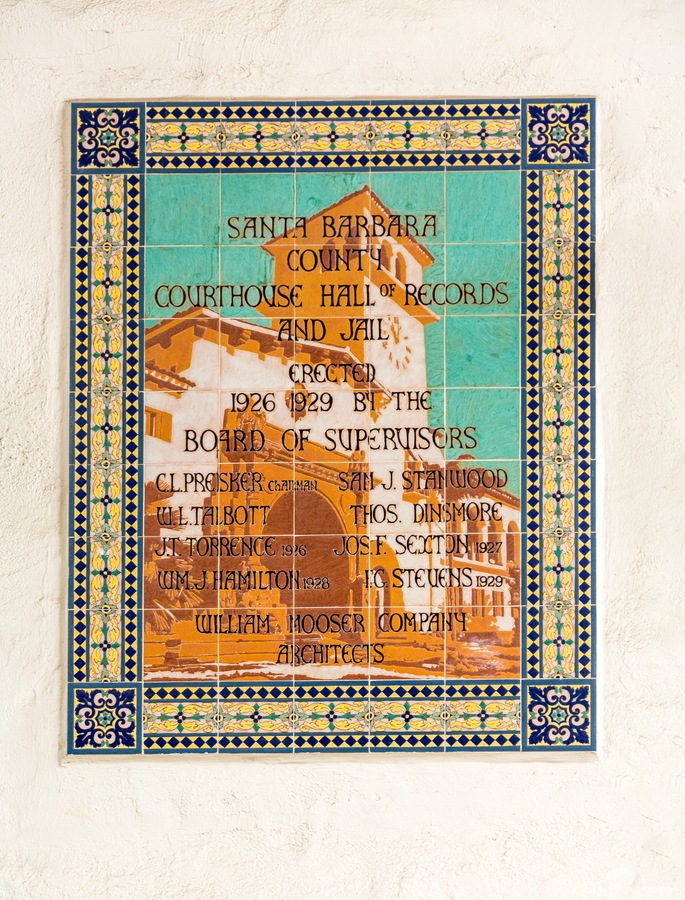 SANTA BARBARA
COUNTY
COURTHOUSE HALL OF RECORDS
AND JAIL
ERECTED
1926 1929 BY THE
BOARD OF SUPERVISORS
C.L. PREISKER CHAIRMAN SAM J. STANWOOD
W.L. TALBOTT THOS. DINSMORE
J.T. TORRENCE 1926 JOS. F. SEXTON 1927
WM. J. HAMILTON 1928 F.G. STEVENS 1929
WILLIAM MOOSER COMPANY
ARCHITECTS